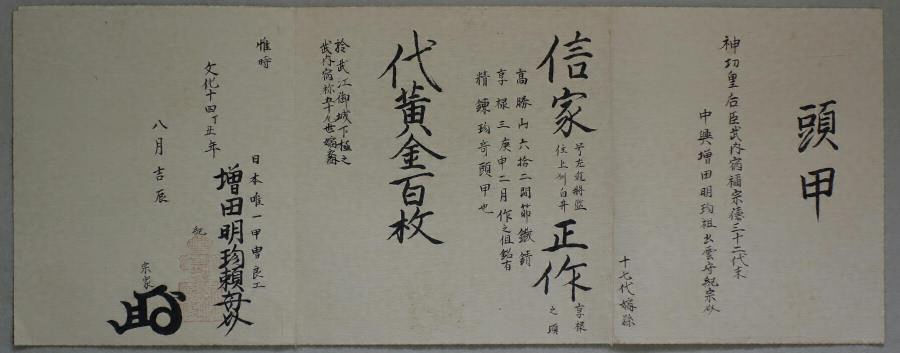 頭甲
神功皇后臣武内宿祢宗徳三十二代末
中興増田明珎祖出雲守紀宗
十七代嫡孫
信家
住上刕白井
正作
享禄
之頃
高勝山六拾二間筋鐡錆
享禄三庚申二月作之但銘有
精錬珎奇頭甲也
代黄金百枚
於武江御城下極之
武内宿祢五十九世嫡裔
惟時
文化十四丁丑年
八月吉辰
日本唯一甲冑良工
増田明珎頼
紀
宗家